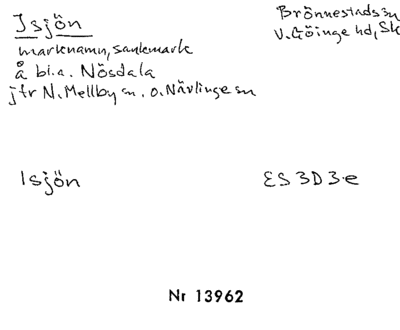 Isjön
Brönnestads sn
V. Göinge hd, Sk
marknamn, sankmark
å bl.a. Nösdala
jfr N. Mellby sn. o. Nävlinge sn
Isjön
ES 3D 3e
Nr 13962